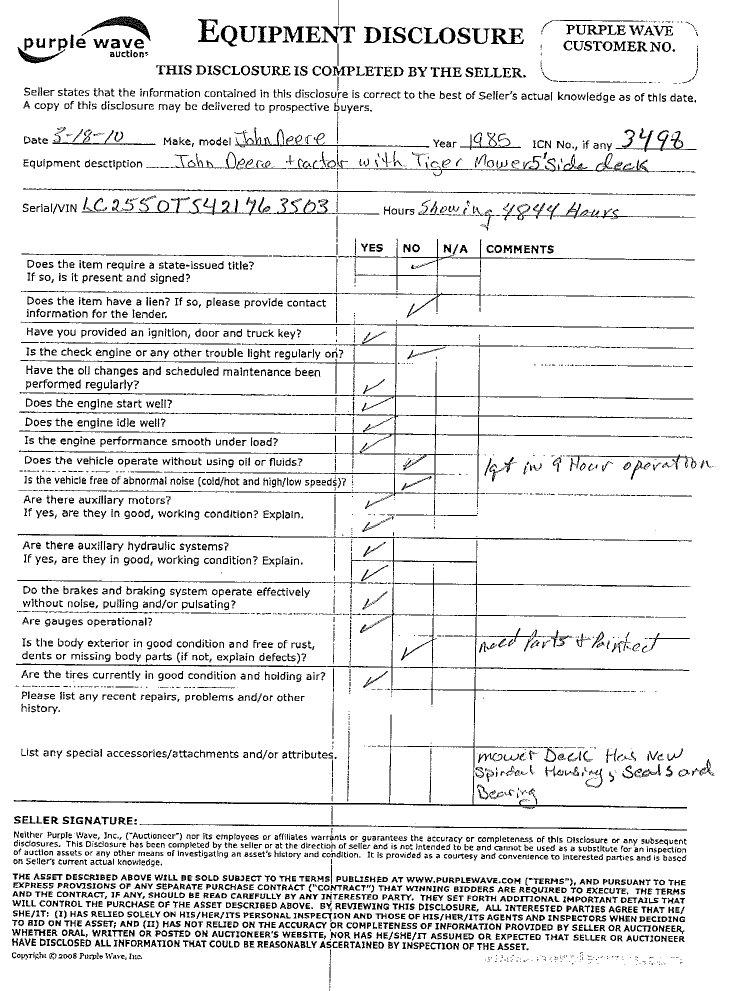 purple wave
auction®
EQUIPMENT DISCLOSURE
PURPLE WAVE
CUSTOMER NO.
THIS DISCLOSURE IS COMPLETED BY THE SELLER.
Seller states that the information contained in this disclosure is correct to the best of Seller's actual knowledge as of this date.
A copy of this disclosure may be delivered to prospective buyers.
Date 3-18-10 Make, model John Deere Year 1985 ICN No., if any 3498
Equipment description John Deere tractor with Tiger Mower 5' Side deck
Serial/VIN LC2550T542176 3503 Hours Showing 4844 Hours
YES NO N/A COMMENTS
Does the item require a state-issued title? ✓
If so, is it present and signed?
Does the item have a lien? If so, please provide contact ✓
information for the lender.
Have you provided an ignition, door and truck key? ✓
Is the check engine or any other trouble light regularly on? ✓
Have the oil changes and scheduled maintenance been
performed regularly? ✓
Does the engine start well? ✓
Does the engine idle well? ✓
Is the engine performance smooth under load? ✓
Does the vehicle operate without using oil or fluids? ✓ 1qt in 9 Hour operation
Is the vehicle free of abnormal noise (cold/hot and high/low speeds)? ✓
Are there auxiliary motors? ✓
If yes, are they in good, working condition? Explain. ✓
Are there auxiliary hydraulic systems? ✓
If yes, are they in good, working condition? Explain. ✓
Do the brakes and braking system operate effectively
without noise, pulling and/or pulsating? ✓
Are gauges operational? ✓
Is the body exterior in good condition and free of rust, need Parts & Painted
dents or missing body parts (if not, explain defects)? ✓
Are the tires currently in good condition and holding air? ✓
Please list any recent repairs, problems and/or other
history.
List any special accessories/attachments and/or attributes. mower Deck Has New
Spindal Housing, Seals and
Bearing
SELLER SIGNATURE:
Neither Purple Wave, Inc., ("Auctioneer") nor its employees or affiliates warrants or guarantees the accuracy or completeness of this Disclosure or any subsequent
disclosures. This Disclosure has been completed by the seller or at the direction of seller and is not intended to be and cannot be used as a substitute for an inspection
of auction assets or any other means of investigating an asset's history and condition. It is provided as a courtesy and convenience to interested parties and is based
on Seller's current actual knowledge.
THE ASSET DESCRIBED ABOVE WILL BE SOLD SUBJECT TO THE TERMS PUBLISHED AT WWW.PURPLEWAVE.COM ("TERMS"), AND PURSUANT TO THE
EXPRESS PROVISIONS OF ANY SEPARATE PURCHASE CONTRACT ("CONTRACT") THAT WINNING BIDDERS ARE REQUIRED TO EXECUTE. THE TERMS
AND THE CONTRACT, IF ANY, SHOULD BE READ CAREFULLY BY ANY INTERESTED PARTY. THEY SET FORTH ADDITIONAL IMPORTANT DETAILS THAT
WILL CONTROL THE PURCHASE OF THE ASSET DESCRIBED ABOVE. BY REVIEWING THIS DISCLOSURE, ALL INTERESTED PARTIES AGREE THAT HE/
SHE/IT: (I) HAS RELIED SOLELY ON HIS/HER/ITS PERSONAL INSPECTION AND THOSE OF HIS/HER/ITS AGENTS AND INSPECTORS WHEN DECIDING
TO BID ON THE ASSET; AND (II) HAS NOT RELIED ON THE ACCURACY OR COMPLETENESS OF INFORMATION PROVIDED BY SELLER OR AUCTIONEER,
WHETHER ORAL, WRITTEN OR POSTED ON AUCTIONEER'S WEBSITE, NOR HAS HE/SHE/IT ASSUMED OR EXPECTED THAT SELLER OR AUCTIONEER
HAVE DISCLOSED ALL INFORMATION THAT COULD BE REASONABLY ASCERTAINED BY INSPECTION OF THE ASSET.
Copyright © 2008 Purple Wave, Inc.